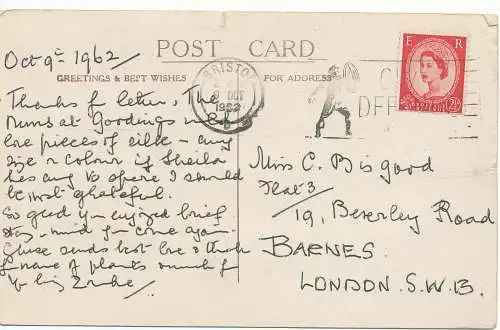 Oct 9th 1962
POST CARD
GREETINGS & BEST WISHES
FOR ADDRESS
BRISTOL
OCT
1962
E R
2½
Thanks for letter, The
Nuns at Goodings
are pieces of silk – any
size & colour if Sheila
has any to spare I should
be most grateful.
So glad you enjoyed brief
stay – mind you come again
sends best love & thanks
for name of plants
Miss C. Bisgood
Flat 3
19, Beverley Road
BARNES.
LONDON. S.W.13.